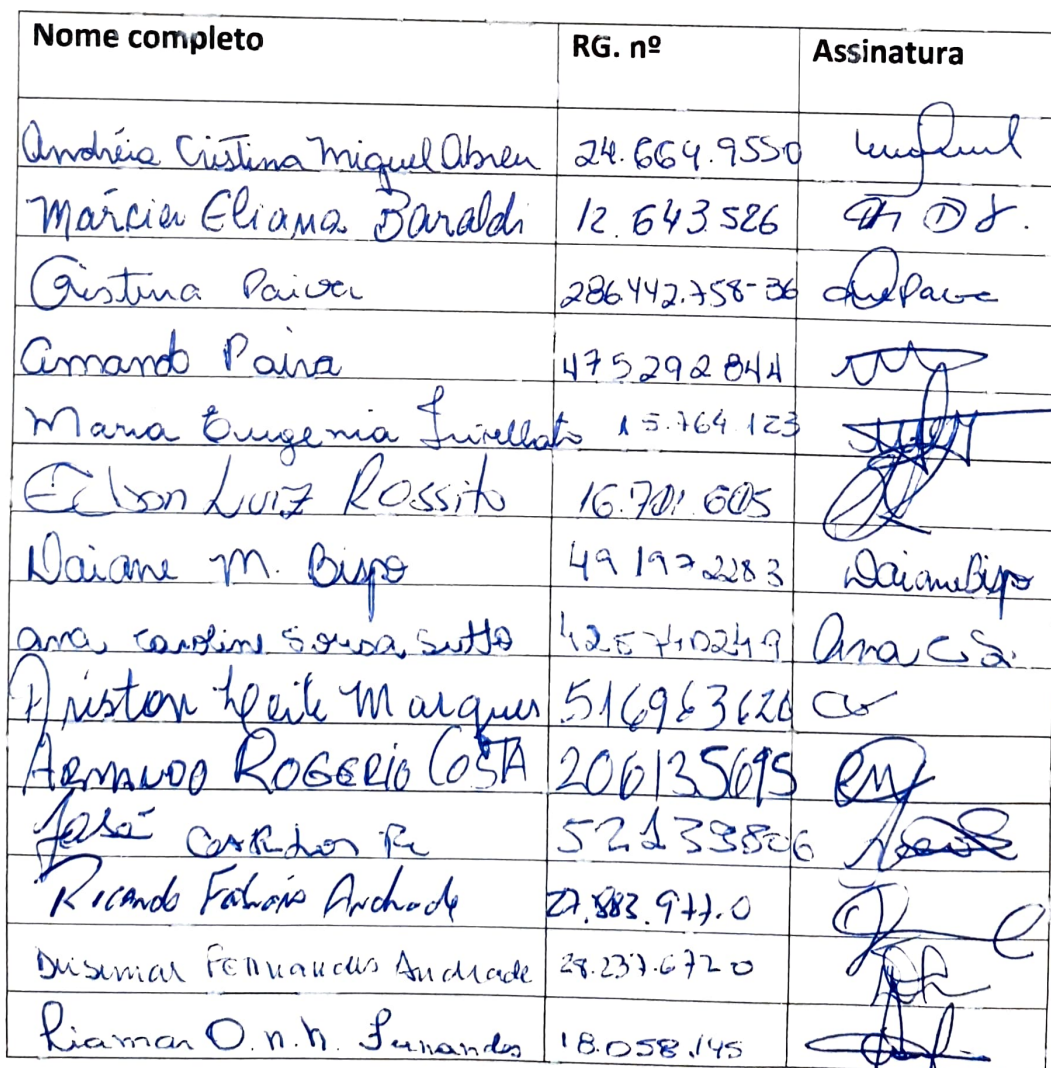 Nome completo RG. nº Assinatura
Andréia Cristina Miguel Abreu 24.664.9550
Márcia Eliana Baraldi 12.643.526
Cristina Paiva 286.442.758-36
Amando Paiva 475292844
Maria Eugenia 15.764.123
Edson Luiz Rossito 16.701.605
Daiane M. Bispo 49 1972283 Daiane Bispo
Ana Caroline Sousa Sutto Ana C S.
Ariston Leite Marques 516963620
ARMANDO ROGERIO COSTA 206135695
José 52133806
Ricardo Andrade 27.883.977.0
Fernandes Andrade 28.237.6720
Liamar O. n. h. Fernandes 18.058.145